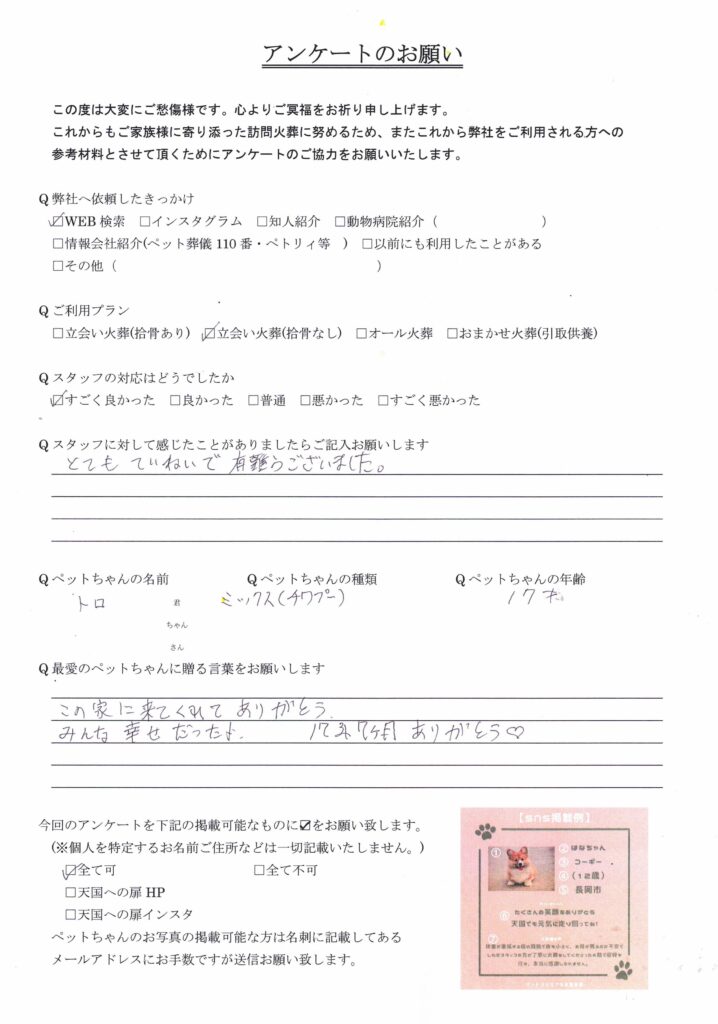 アンケートのお願い
この度は大変にご愁傷様です。心よりご冥福をお祈り申し上げます。
これからもご家族様に寄り添った訪問火葬に努めるため、またこれから弊社をご利用される方への
参考材料とさせて頂くためにアンケートのご協力をお願いいたします。
Q 弊社へ依頼したきっかけ
☑WEB 検索 □インスタグラム □知人紹介 □動物病院紹介（ ）
□情報会社紹介(ペット葬儀 110 番・ペトリィ等 ) □以前にも利用したことがある
□その他（ ）
Q ご利用プラン
□立会い火葬(拾骨あり) ☑立会い火葬(拾骨なし) □オール火葬 □おまかせ火葬(引取供養)
Q スタッフの対応はどうでしたか
☑すごく良かった □良かった □普通 □悪かった □すごく悪かった
Q スタッフに対して感じたことがありましたらご記入お願いします
とても ていねいで 有難うございました。
Q ペットちゃんの名前 Q ペットちゃんの種類 Q ペットちゃんの年齢
トロ 君 ミックス(チワプー) 17才
ちゃん
さん
Q 最愛のペットちゃんに贈る言葉をお願いします
この家に来てくれて ありがとう
みんな 幸せだったよ. 17才7ヶ月 ありがとう♡
今回のアンケートを下記の掲載可能なものに☑をお願い致します。
(※個人を特定するお名前ご住所などは一切記載いたしません。)
☑全て可 □全て不可
□天国への扉 HP
□天国への扉インスタ
ペットちゃんのお写真の掲載可能な方は名刺に記載してある
メールアドレスにお手数ですが送信お願い致します。
【sns掲載例】
① ② はなちゃん
③ コーギー
④ (12歳)
⑤ 長岡市
⑥ たくさんの笑顔をありがとう
天国でも元気に走り回ってね!
⑦